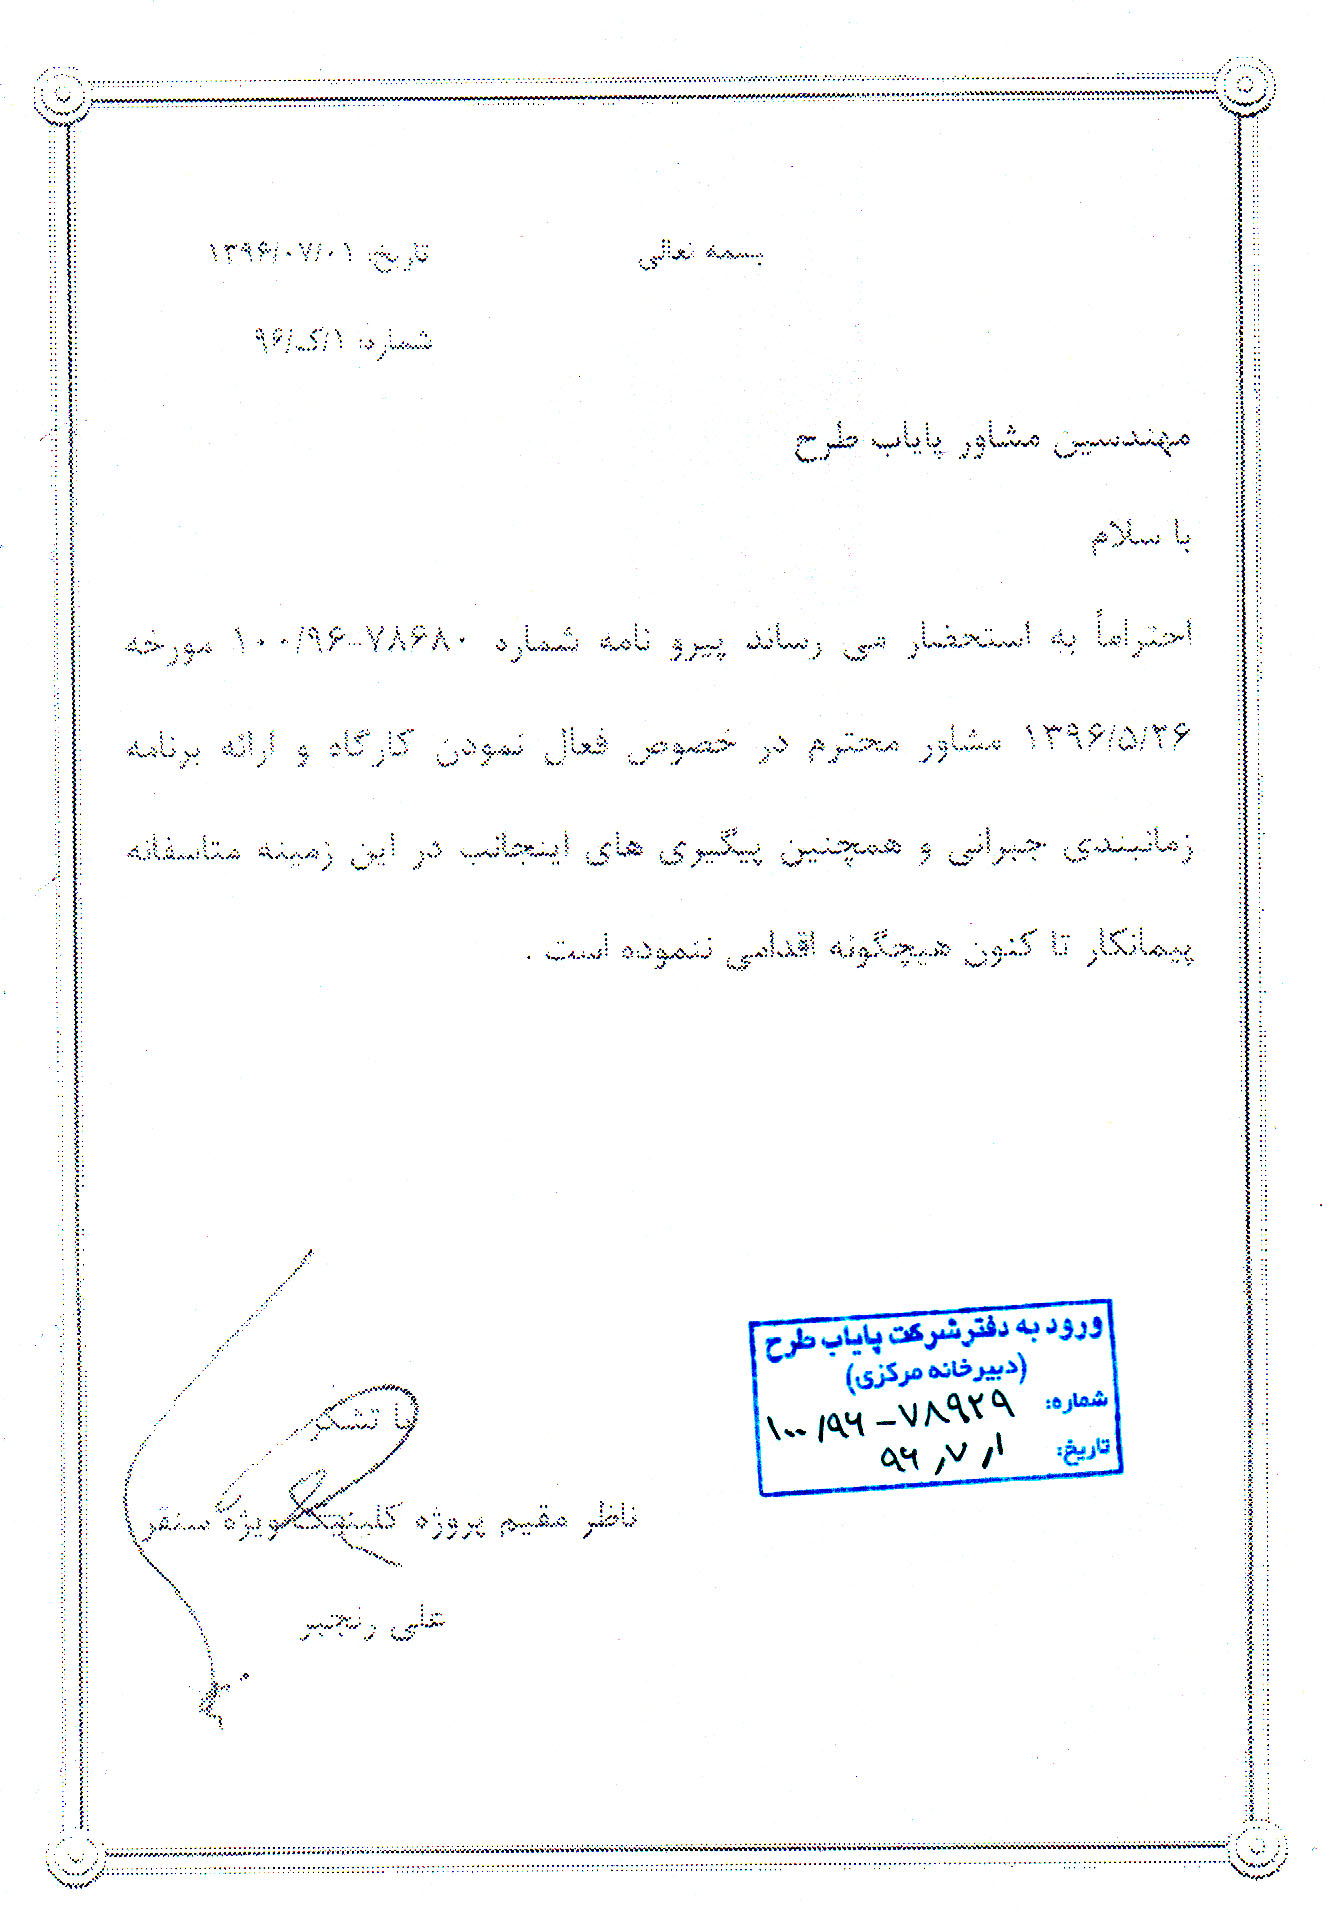 بسمه تعالی
تاریخ: ۱۳۹۶/۰۷/۰۱
شماره: ۱/ک/۹۶
مهندسین مشاور پایاب طرح
با سلام
احتراماً به استحضار می رساند پیرو نامه شماره ۷۸۶۸۰-۱۰۰/۹۶ مورخه
۱۳۹۶/۵/۲۶ مشاور محترم در خصوص فعال نمودن کارگاه و ارائه برنامه
زمانبندی جبرانی و همچنین پیگیری های اینجانب در این زمینه متاسفانه
پیمانکار تا کنون هیچگونه اقدامی ننموده است .
ورود به دفتر شرکت پایاب طرح
(دبیرخانه مرکزی)
شماره: ۱۰۰/۹۶-۷۸۹۲۹
تاریخ: ۹۶٫۷٫۱
با تشکر
ناظر مقیم پروژه کلینیک ویژه سنقر
علی رنجبر